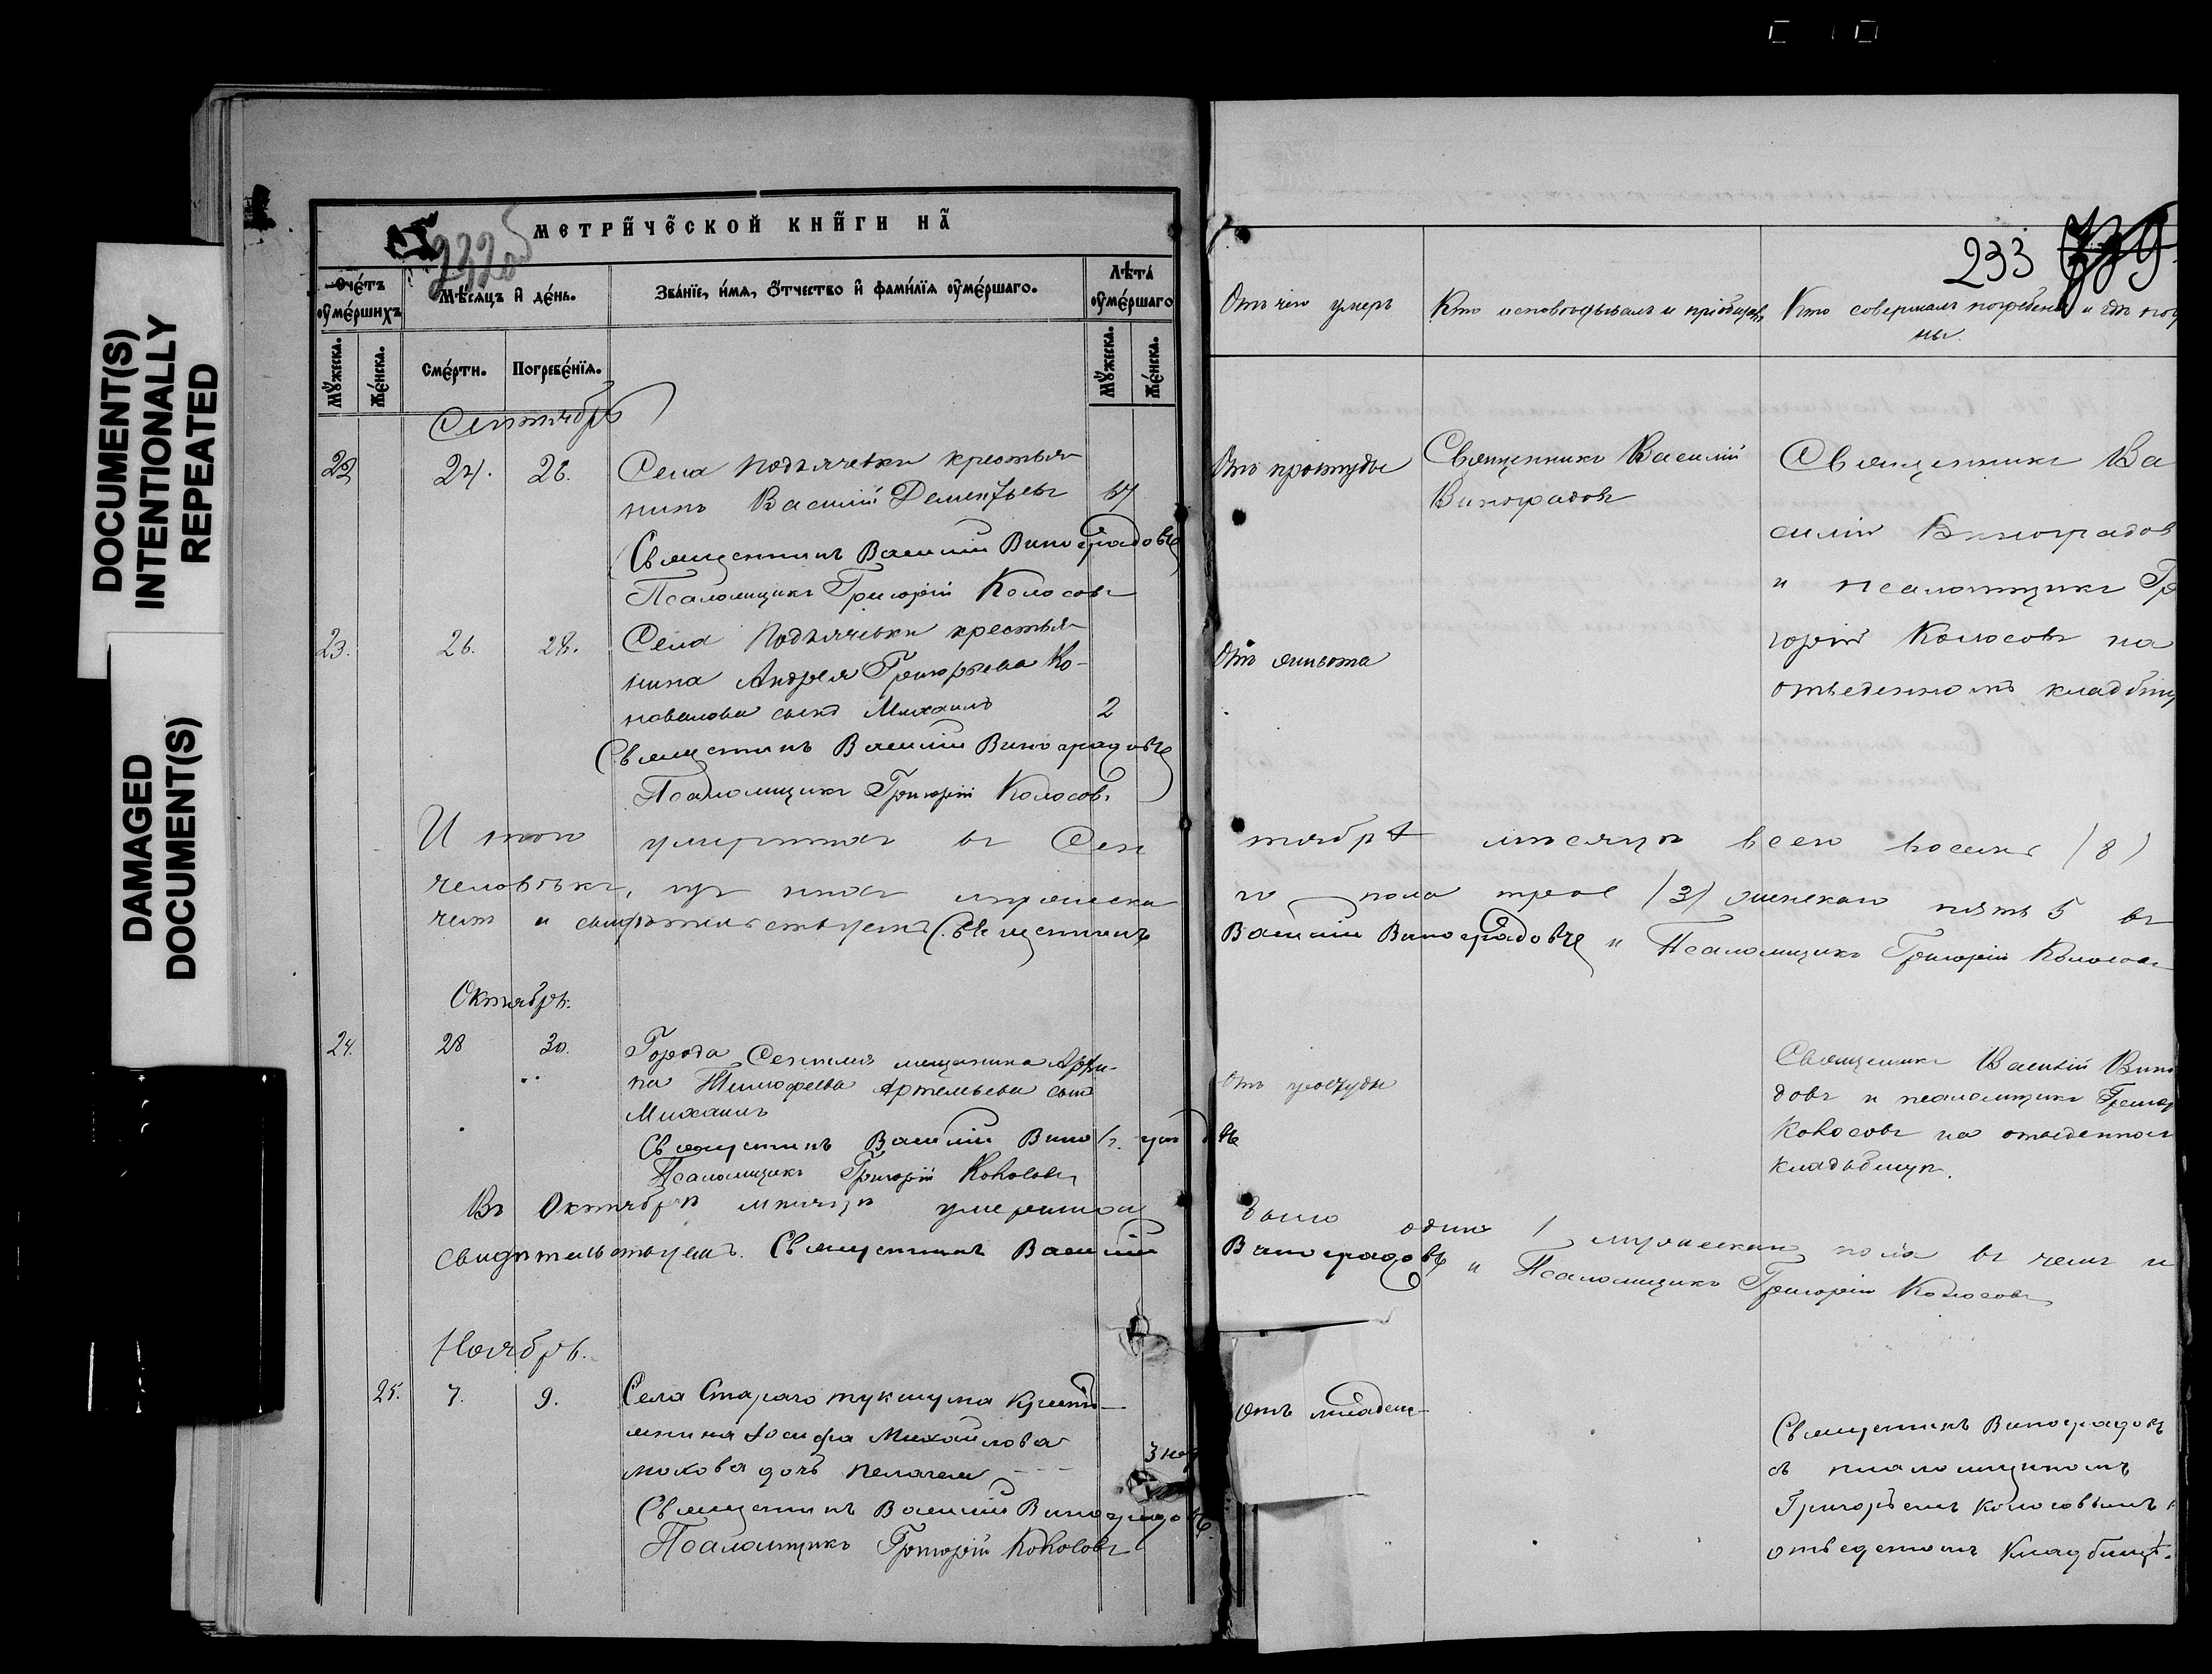 DOCUMENT(S)
INTENTIONALLY
REPEATED
DAMAGED
DOCUMENT(S)
МЕТРИЧЕСКОЙ КНИГИ НА
232об
Счетъ
умершихъ
Мѣсяцъ и день.
Званіе, имя, отчество и фамилія умершаго.
Лѣта
умершаго
Мужеска.
Женска.
Смерти.
Погребенія.
Мужеска.
Женска.
Сентябрь
22 24. 26. Села Подъячевки крестья-
нинъ Василій Дементьевъ 67
Священникъ Василій Виноградовъ
Псаломщикъ Григорій Колосовъ
23. 26. 28. Села Подъячевки крестья-
нина Андрея Григорьева Ко-
новалова сынъ Михаилъ 2
Священникъ Василій Виноградовъ
Псаломщикъ Григорій Колосовъ
Итого умершихъ въ Сен
человѣкъ, изъ нихъ мужеска
чемъ и свидѣтельствуемъ Священникъ
Октябрь.
24. 28 30. Города Сенгилея мещанина
Тимофеева Артемьева сынъ
Михаилъ
Священникъ Василій Виноградовъ
Псаломщикъ Григорій Колосовъ
Въ Октябрѣ мѣсяцѣ умершихъ
свидѣтельствуемъ. Священникъ Василій
Ноябрь.
25. 7. 9. Села Стараго Тукшума крестья-
нина Іосифа Михайлова
дочь Пелагея 3 нед
Священникъ Василій Виноградовъ
Псаломщикъ Григорій Колосовъ
233
Отъ чего умеръ
Кто исповѣдывалъ и пріобщалъ
Кто совершалъ погребеніе и гдѣ погребе
ны.
Отъ простуды
Священникъ Василій
Виноградовъ
Священникъ Ва
силій Виноградов
и псаломщикъ Гр
горій Колосовъ на
отведенномъ кладбищ
Отъ живота
тябрѣ мѣсяцѣ всего восемь (8)
го пола трое (3) женскаго пять 5 въ
Василій Виноградовъ и Псаломщикъ Григорій Колосовъ
Отъ простуды
Священникъ Василій Вино
довъ и псаломщикъ Григор
Колосовъ на отведенном
кладьбищѣ.
было одинъ 1 мужескаго пола въ чемъ и
Виноградовъ и Псаломщикъ Григорій Колосовъ
отъ младен-
Священникъ Виноградовъ
съ псаломщикомъ
Григорьемъ Колосовымъ
отведенномъ Кладбищѣ.